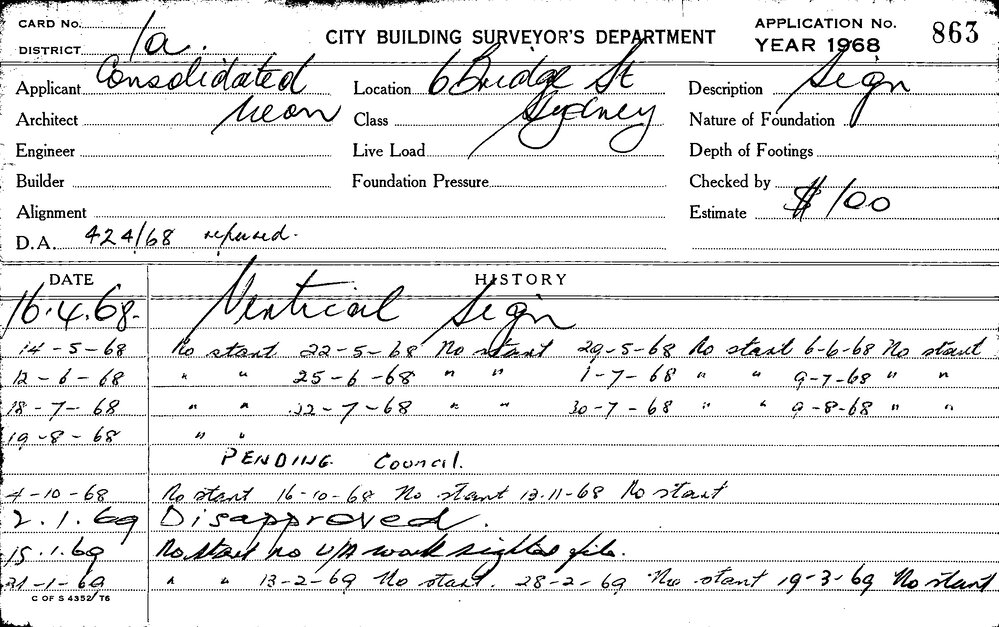 CARD No.
DISTRICT 1a.
CITY BUILDING SURVEYOR'S DEPARTMENT
APPLICATION No. 863
YEAR 1968
Applicant Consolidated Location 6 Bridge St Description Sign
Architect Neon Class Sydney Nature of Foundation
Engineer Live Load Depth of Footings
Builder Foundation Pressure Checked by
Alignment Estimate $100
D.A. 424/68 refused.
DATE HISTORY
16.4.68. Vertical Sign
14-5-68 No start 22-5-68 No start 29-5-68 No start 6-6-68 No start
12-6-68 " " 25-6-68 " " 1-7-68 " " 9-7-68 " "
18-7-68 " " 22-7-68 " " 30-7-68 " " 9-8-68 " "
19-8-68 " "
PENDING Council.
4-10-68 No start 16-10-68 No start 13-11-68 No start
2.1.69 Disapproved.
15.1.69 No start no U/A work sighted file.
31-1-69 " " 13-2-69 No start. 28-2-69 No start 19-3-69 No start
C OF S 4352/T6